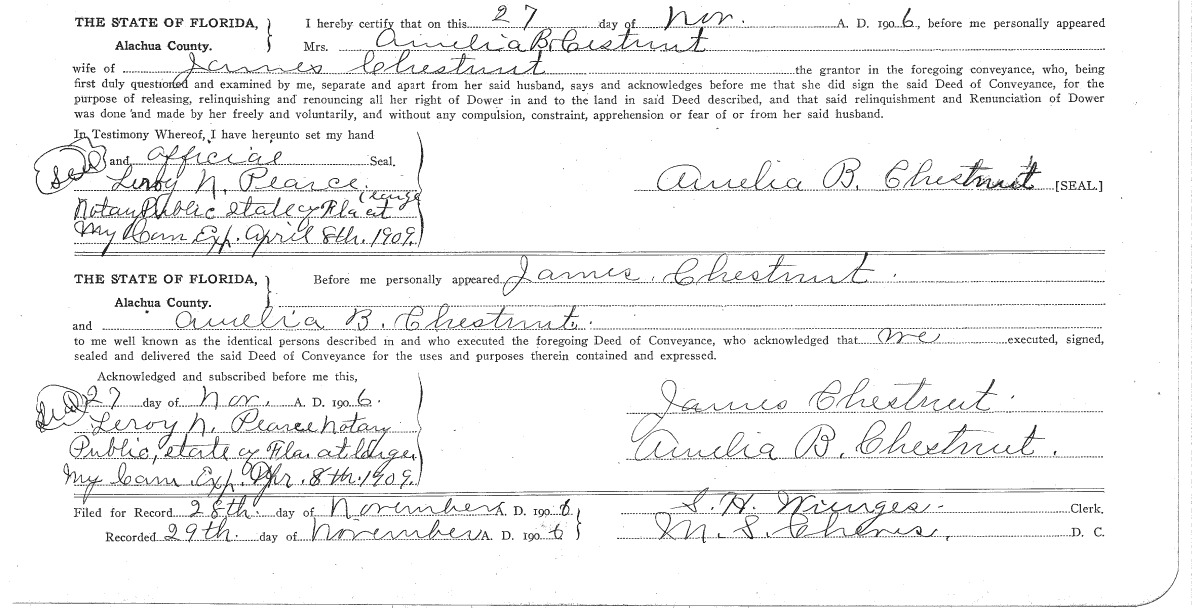 THE STATE OF FLORIDA, } I hereby certify that on this 27 day of Nov. A. D. 1906, before me personally appeared
Alachua County. Mrs. Amelia B. Chestnut
wife of James Chestnut the grantor in the foregoing conveyance, who, being
first duly questioned and examined by me, separate and apart from her said husband, says and acknowledges before me that she did sign the said Deed of Conveyance, for the
purpose of releasing, relinquishing and renouncing all her right of Dower in and to the land in said Deed described, and that said relinquishment and Renunciation of Dower
was done and made by her freely and voluntarily, and without any compulsion, constraint, apprehension or fear of or from her said husband.
In Testimony Whereof, I have hereunto set my hand
Seal and official Seal.
Leroy N. Pearce
Amelia B. Chestnut [SEAL.]
Notary Public state of Fla at large
My Com Exp. April 8th. 1909.
THE STATE OF FLORIDA, } Before me personally appeared James Chestnut.
Alachua County.
and Amelia B. Chestnut.
to me well known as the identical persons described in and who executed the foregoing Deed of Conveyance, who acknowledged that executed, signed,
sealed and delivered the said Deed of Conveyance for the uses and purposes therein contained and expressed.
Acknowledged and subscribed before me this,
Seal 27 day of Nov. A. D. 1906.
James Chestnut.
Leroy N. Pearce Notary
Public, state of Fla. at large
Amelia B. Chestnut.
My Com. Exp. Apr. 8th. 1909.
Filed for Record 28th. day of November A. D. 1906 S. H. Clerk.
Recorded 29th. day of November A. D. 1906 M. S. D. C.